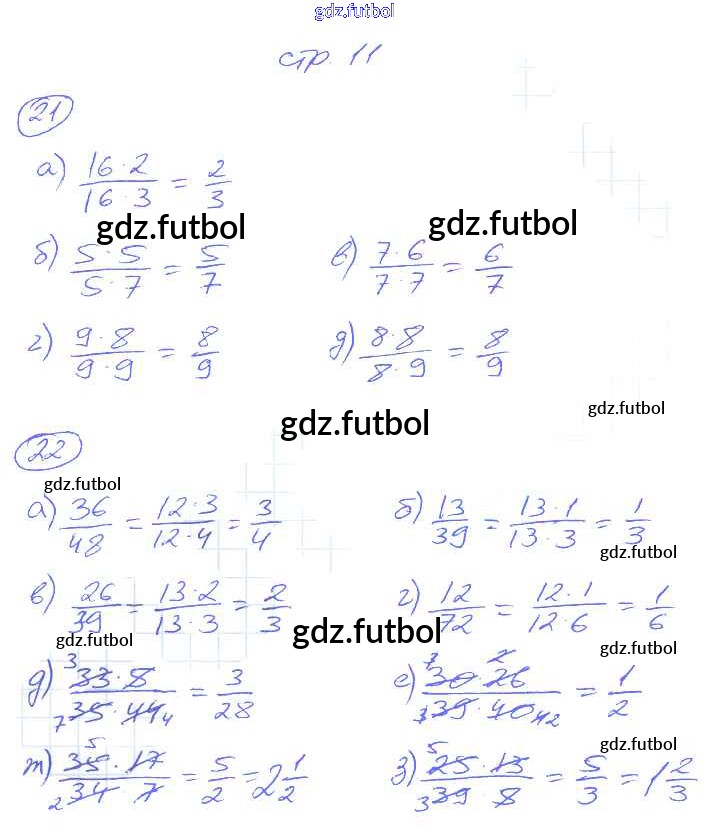 gdz.futbol
стр. 11
21
а) 16·2/16·3 = 2/3
gdz.futbol
gdz.futbol
б) 5·5/5·7 = 5/7 в) 7·6/7·7 = 6/7
г) 9·8/9·9 = 8/9 д) 8·8/8·9 = 8/9
gdz.futbol
gdz.futbol
22
gdz.futbol
а) 36/48 = 12·3/12·4 = 3/4 б) 13/39 = 13·1/13·3 = 1/3
gdz.futbol
в) 26/39 = 13·2/13·3 = 2/3 г) 12/72 = 12·1/12·6 = 1/6
gdz.futbol
gdz.futbol
gdz.futbol
д) 33·8/35·44 = 3/28 е) 30·26/39·40 = 1/2
gdz.futbol
ж) 35·17/34·7 = 5/2 = 2 1/2 з) 25·13/39·8 = 5/3 = 1 2/3